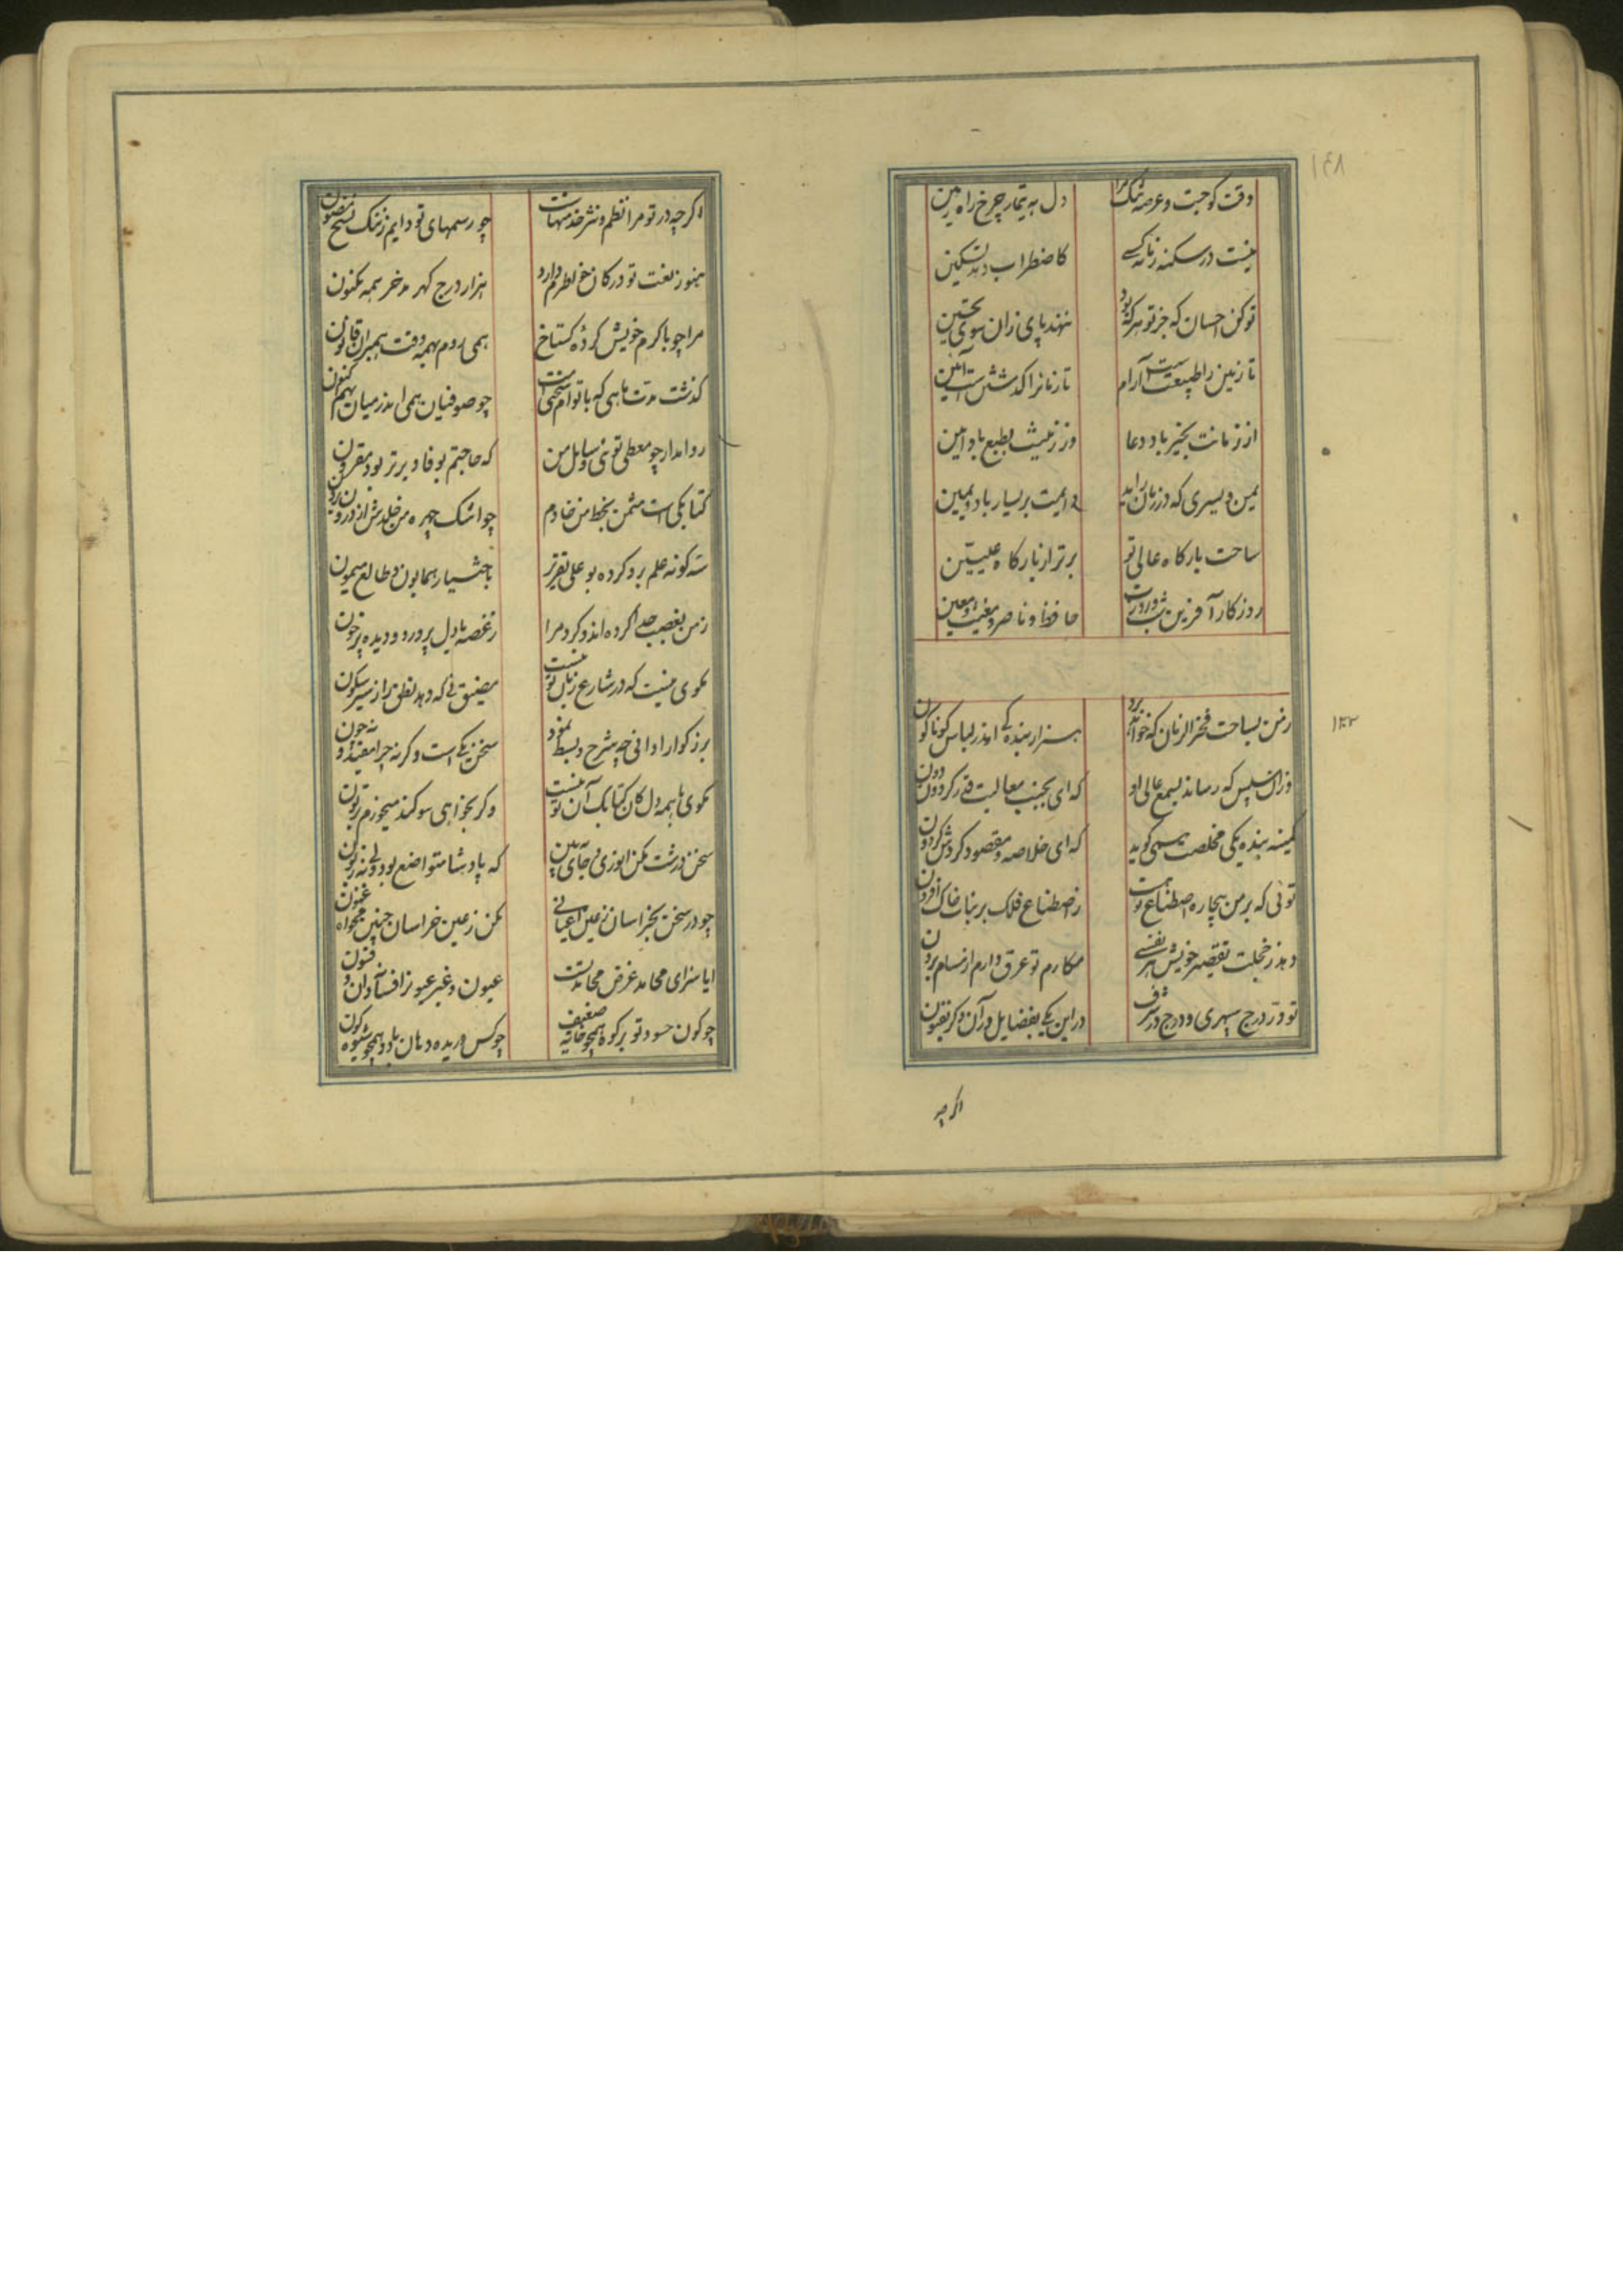 ۱۴۸
وقت کوچست و عرصه تنک مرا دل به تیمار چرخ راه مبین
نیست در سکنه زمانه کسی کاضطراب دهد تسکین
تو کن احسان که جز تو هر که بود ننهد پای زان سوی تحسین
تا زمین را طبیعت است آرام تا زمانرا کدشتن ست آیین
از زمانت بخیر باد دعا وز زمینت بطبع باد آمین
یمن و یسری که در زمان آید دایمت بر یسار باد و یمین
ساحت بارکاه عالی تو برتر از بارکاه علیین
روزکار آفرین شب و روزت حافظ و ناصر و مغیث و معین
۱۳۲
ز من بساحت فخر الزمان که خواهد برد هزار بنده کی اندر لباس کوناکون
وزان سپس که رساند بسمع عالی او که ای بجنب معالیت قدر کردون دون
کمینه بنده یکی مخلصت همی کوید که ای خلاصه و مقصود کردش کردون
توئی که بر من بیچاره اصطناع تو هست ز اصطناع فلک بر نبات خاک افزون
دهد ز خجلت تقصیر خویش هر نفسی مکارم تو عرق دارم از مسام برون
تو در درج سپهری و درج در شرف در این یکی بفضایل در آن دکر بفنون
اکرچه
اکرچه در تو مرا نظم و نثر خدمتهاست چو رسمهای تو دایم ز ننک نسخ مصون
هنوز نعت تو در کان خاطرم دارد هزار درج کهر مدخر همه مکنون
مرا چو با کرم خویش کردهٔ کستاخ همی روم بهمه وقت هم بران قانون
کذشت مدت ماهی که با توام سخنی است چو صوفیان همی اندر میان نهم کنون
روا مدار چو معطی توئی و سایل من که حاجتم بوفا دیرتر بود مقرون
کتابکی است مثمن بخط من خادم چو اشک چهره من خلدش از درون بیرون
سه کونه علم برو کرده بو علی تقریر باختیار همایون و طالع میمون
ز من بغصب جدا کرده اند و کرد مرا ز غصه با دل پر درد و دیده پر خون
بکوی نیست که در شارع زبان تو نیست مضیق نی که دهد نطق را ز سیر سکون
بزرکوارا دانی چه شرح و بسط نمود سخن یکی است وکرنه چرا مفید و نه چون
بکوی با همه دل کان کتابک آن تو نیست وکر بخواهی سوکند میخورم بر تون
سخن درشت مکن انوری و جای ببین که پادشا متواضع بود ولی نه زبون
چو در سخن بخراسان ز عین اعیانی مکن ز عین خراسان چنین مخواه غبون
ایا سزای محامد غرض محامد تست عیون و غیر عیون از افسانه و ان و فنون
چو کون حسود تو بر کوه همچو خانه ضعیف چو کس دریده دهان باد و همچو شیوه کون